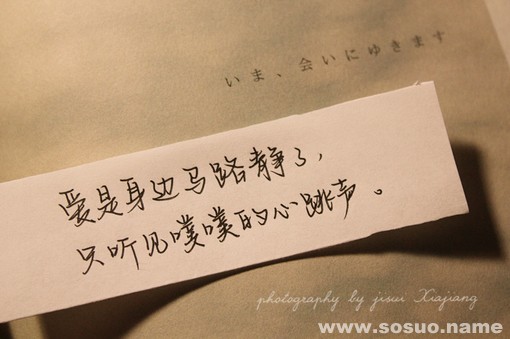 いま、会いにゆきます
爱是身边马路静了，
只听见噗噗的心跳声。
photography by jisui Xiajiang
www.sosuo.name